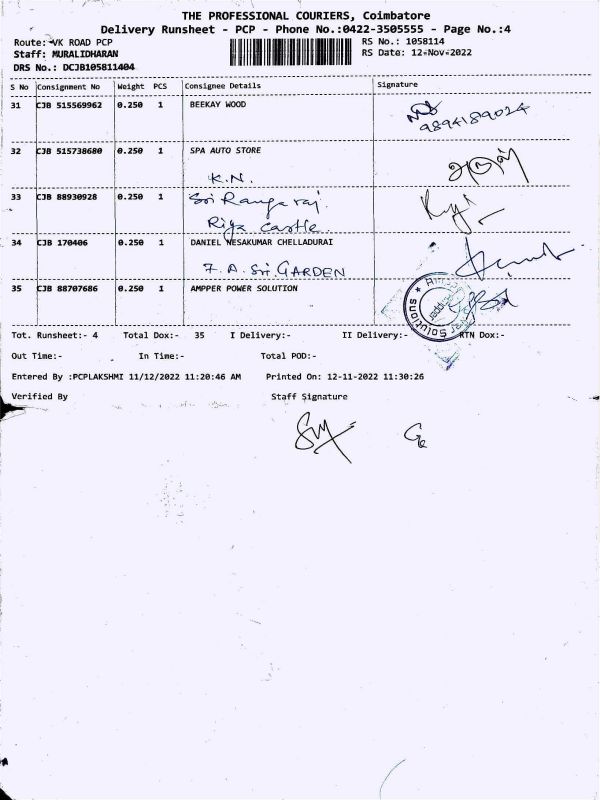 THE PROFESSIONAL COURIERS, Coimbatore
Delivery Runsheet - PCP - Phone No.:0422-3505555 - Page No.:4
Route: VK ROAD PCP RS No.: 1058114
Staff: MURALIDHARAN RS Date: 12-Nov-2022
DRS No.: DCJB105811404
S No Consignment No Weight PCS Consignee Details Signature
31 CJB 515569962 0.250 1 BEEKAY WOOD
9894189024
32 CJB 515738680 0.250 1 SPA AUTO STORE
K.N.
33 CJB 88930928 0.250 1 Sri Rangaraj
Riya Castle
34 CJB 170406 0.250 1 DANIEL NESAKUMAR CHELLADURAI
7. A. Sri. GARDEN
35 CJB 88707686 0.250 1 AMPPER POWER SOLUTION
Tot. Runsheet:- 4 Total Dox:- 35 I Delivery:- II Delivery:- RTN Dox:-
Out Time:- In Time:- Total POD:-
Entered By :PCPLAKSHMI 11/12/2022 11:20:46 AM Printed On: 12-11-2022 11:30:26
Verified By Staff Signature